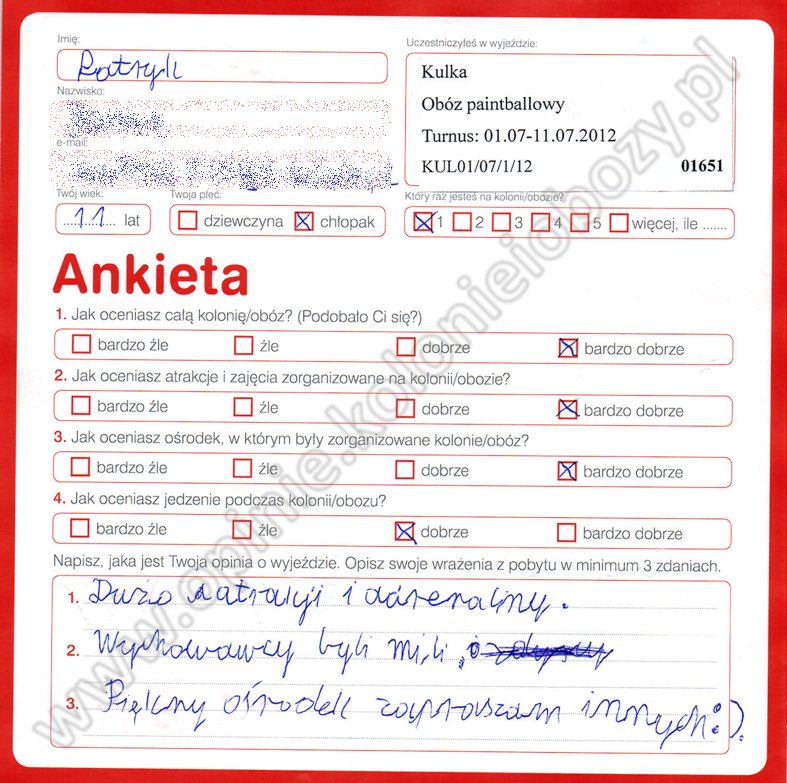 Imię:
Patryk
Uczestniczyłeś w wyjeździe:
Kulka
Obóz paintballowy
Turnus: 01.07-11.07.2012
KUL01/07/1/12 01651
Nazwisko:
e-mail:
Twój wiek:
11 lat
Twoja płeć:
dziewczyna chłopak
Który raz jesteś na kolonii/obozie?
1 2 3 4 5 więcej, ile .......
Ankieta
1. Jak oceniasz całą kolonię/obóz? (Podobało Ci się?)
bardzo źle źle dobrze bardzo dobrze
2. Jak oceniasz atrakcje i zajęcia zorganizowane na kolonii/obozie?
bardzo źle źle dobrze bardzo dobrze
3. Jak oceniasz ośrodek, w którym były zorganizowane kolonie/obóz?
bardzo źle źle dobrze bardzo dobrze
4. Jak oceniasz jedzenie podczas kolonii/obozu?
bardzo źle źle dobrze bardzo dobrze
Napisz, jaka jest Twoja opinia o wyjeździe. Opisz swoje wrażenia z pobytu w minimum 3 zdaniach.
1. Dużo atrakcji i adrenaliny.
2. Wychowawcy byli mili
3. Piękny ośrodek zapraszam innych :).
www.opinie.kolonieiobozy.pl